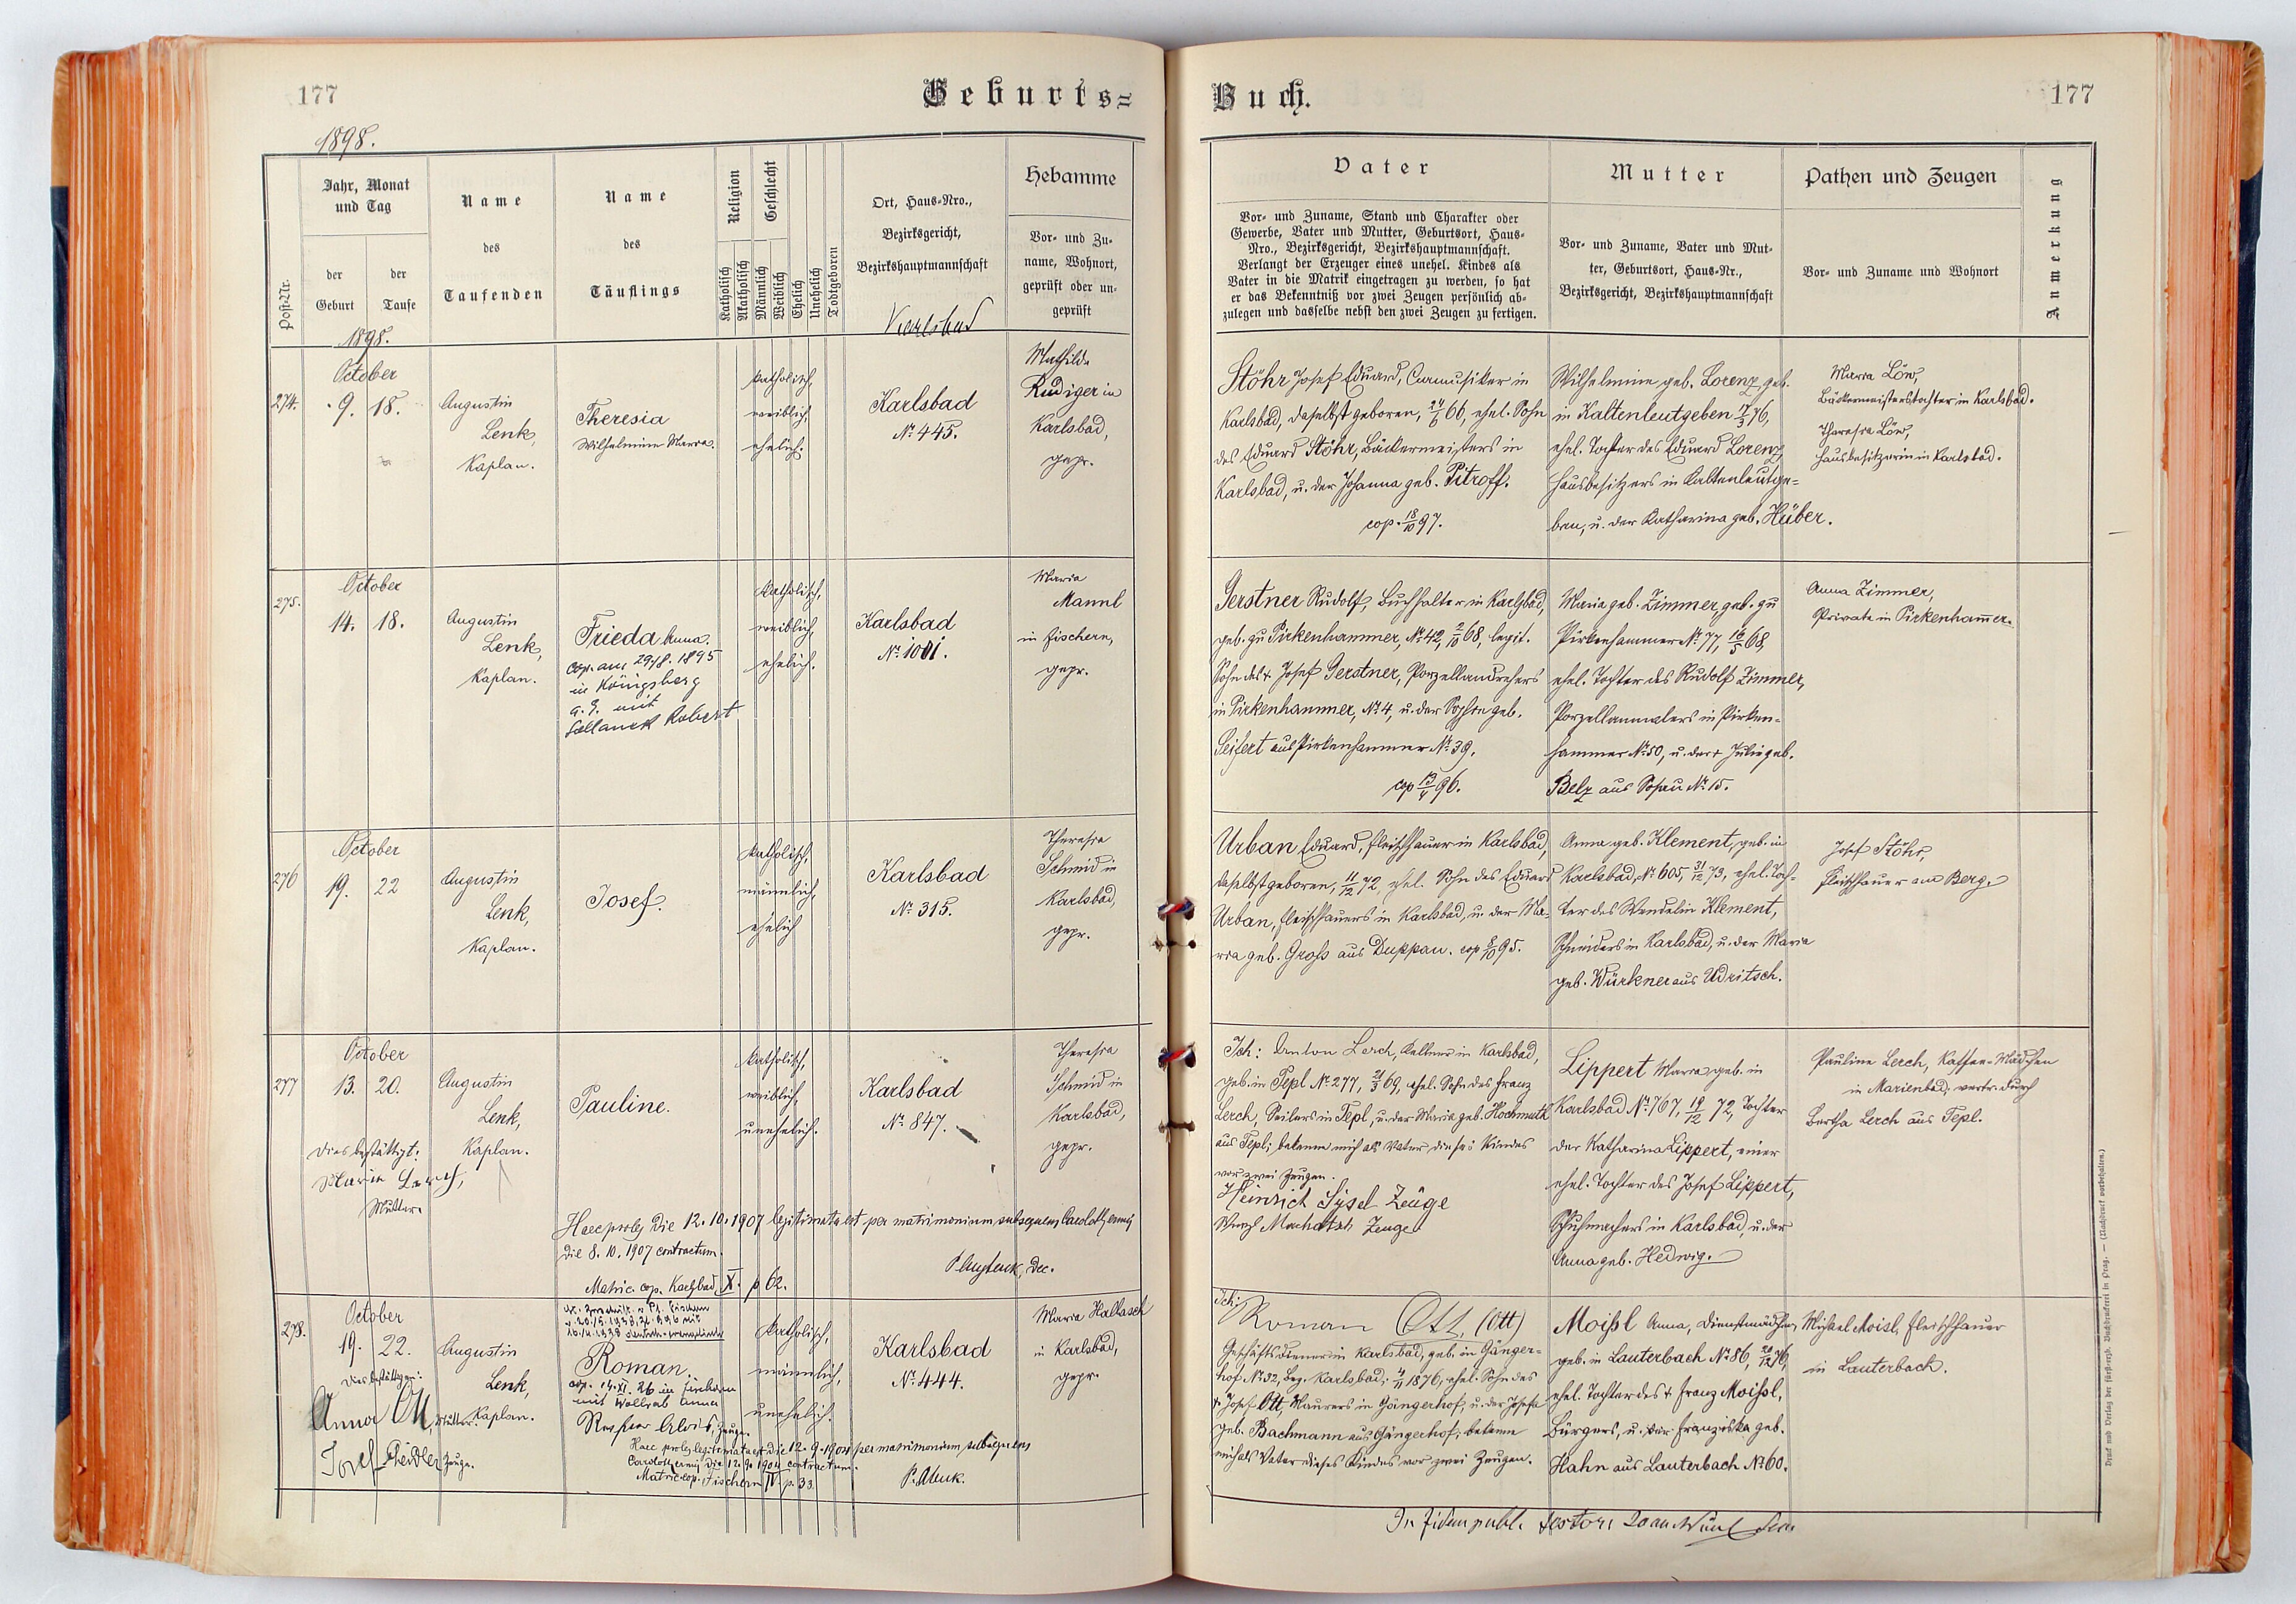 177
Geburts=
1898.
Post-Nr.
Jahr, Monat
und Tag
der
Geburt
der
Taufe
Name
des
Taufenden
Name
des
Täuflings
Religion
Katholisch
Akatholisch
Geschlecht
Männlich
Weiblich
Ehelich
Unehelich
Todtgeboren
Ort, Haus-Nro.,
Bezirksgericht,
Bezirkshauptmannschaft
Karlsbad
Hebamme
Vor- und Zu-
name, Wohnort,
geprüft oder un-
geprüft
1898.
274.
October
9. 18.
Augustin
Lenk,
Kaplan.
Theresia
Wilhelmine Maria.
katholisch,
weiblich,
ehelich.
Karlsbad
No 445.
Mathilde
Rudiger in
Karlsbad,
gepr.
275.
October
14. 18.
Augustin
Lenk,
Kaplan.
Frieda Anna.
cop. am 29/8. 1895
in Königsberg
a. E. mit
Robert
katholisch,
weiblich,
ehelich.
Karlsbad
No 1001.
Maria
Mannl
in Fischern,
gepr.
276
October
19. 22
Augustin
Lenk,
Kaplan.
Josef.
katholisch,
männlich,
ehelich
Karlsbad
No 315.
Theresia
Schmid in
Karlsbad,
gepr.
277
October
13. 20.
Dies bestättigt:
Maria Lerch,
Mutter.
Augustin
Lenk,
Kaplan.
Pauline.
katholisch,
weiblich,
unehelich.
Karlsbad
No 847.
Theresia
Schmid in
Karlsbad,
gepr.
Haec proles die 12. 10. 1907 legitimata est per matrimonium subsequens
die 8. 10. 1907 contractum.
dec.
Matric. cop. Karlsbad X. p 62.
278.
October
19. 22.
Dies bestättigen:
Anna Ott, Mutter.
Josef Zeuge.
Augustin
Lenk,
Kaplan.
Roman.
cop. 14. XI. 26 in Fischern
mit Anna
Alois, Zeuge.
katholisch,
männlich,
unehelich.
Karlsbad
No 444.
Maria Halbasch
in Karlsbad,
gepr.
Haec proles legitimata est die 12. 9. 1904 per matrimonium subsequens
die 12. 9. 1904 contractum.
Matric. cop. Fischern IV. p. 33.
Buch.
177
Vater
Vor- und Zuname, Stand und Charakter oder
Gewerbe, Vater und Mutter, Geburtsort, Haus-
Nro., Bezirksgericht, Bezirkshauptmannschaft.
Verlangt der Erzeuger eines unehel. Kindes als
Vater in die Matrik eingetragen zu werden, so hat
er das Bekenntniß vor zwei Zeugen persönlich ab-
zulegen und dasselbe nebst den zwei Zeugen zu fertigen.
Mutter
Vor- und Zuname, Vater und Mut-
ter, Geburtsort, Haus-Nr.,
Bezirksgericht, Bezirkshauptmannschaft
Pathen und Zeugen
Vor- und Zuname und Wohnort
Anmerkung
Stöhr Josef Eduard, Curmusiker in
Karlsbad, daselbst geboren, 24/6 66, ehel. Sohn
des Eduard Stöhr, Bäckermeisters in
Karlsbad, u. der Johanna geb. Pitroff.
cop. 18/10 97.
Wilhelmine geb. Lorenz, geb.
in Kaltenleutgeben 7/3 76,
ehel. Tochter des Eduard Lorenz
Hausbesitzers in Kaltenleutge=
ben, u. der Katharina geb. Hüber.
Maria Löw,
Bäckermeisterstochter in Karlsbad.
Theresia Löw,
Hausbesitzerin in Karlsbad.
Gerstner Rudolf, Buchhalter in Karlsbad,
geb. zu Pirkenhammer, No 42, 2/10 68, legit.
Sohn des + Josef Gerstner, Porzellandrehers
in Pirkenhammer, No 4, u. der Sophie geb.
Seifert aus Pirkenhammer No 39.
cop 13/4 96.
Maria geb. Zimmer, geb. zu
Pirkenhammer No 77, 16/5 68,
ehel. Tochter des Rudolf Zimmer,
Porzellanmalers in Pirken=
hammer No 50, u. der + Julie geb.
Belz aus Sohau No 15.
Anna Zimmer,
Private in Pirkenhammer.
Urban Eduard, Fleischhauer in Karlsbad,
daselbst geboren, 11/12 72, ehel. Sohn des Eduard
Urban, Fleischhauers in Karlsbad, u. der Ma-
ria geb. Groß aus Duppau. cop 8/10 95.
Anna geb. Klement, geb. in
Karlsbad, No 605, 31/12 73, ehel. Toch-
ter des Wendelin Klement,
Schneiders in Karlsbad, u. der Maria
geb. Würkner aus Udritsch.
Josef Stöhr,
Fleischhauer am Berg.
Ich: Anton Lerch, Kellner in Karlsbad,
geb. in Tepl No 277, 21/3 69, ehel. Sohn des Franz
Lerch, Seilers in Tepl, u. der Maria geb. Hochmuth
aus Tepl; bekenne mich als Vater dieses Kindes
vor zwei Zeugen.
Heinrich Sysel Zeuge
Wenzl Zeuge
Lippert Maria geb. in
Karlsbad No 767, 19/12 72, Tochter
der Katharina Lippert, einer
ehel. Tochter des Josef Lippert,
Schuhmachers in Karlsbad, u. der
Anna geb. Hedwig.
Pauline Lerch, Kaffee-Mädchen
in Marienbad; vertr. durch
Bertha Lerch aus Tepl.
Ich:
Roman Ott, (Ott)
Geschäftsdiener in Karlsbad, geb. in Gänger-
hof No 32, Bez. Karlsbad; 4/11 1876, ehel. Sohn des
+ Josef Ott, Maurers in Gängerhof, u. der Josefa
geb. Bachmann aus Gängerhof; bekenne
mich als Vater dieses Kindes vor zwei Zeugen.
Moißl Anna, Dienstmädchen,
geb. in Lauterbach No 86, 20/12 76,
ehel. Tochter des + Franz Moißl,
Bürgers, u. der Franziska geb.
Hahn aus Lauterbach No 60.
Michael Moisl, Fleischhauer
in Lauterbach.
Druck und Verlag der fürsterzb. Buchdruckerei in Prag. — (Nachdruck vorbehalten.)